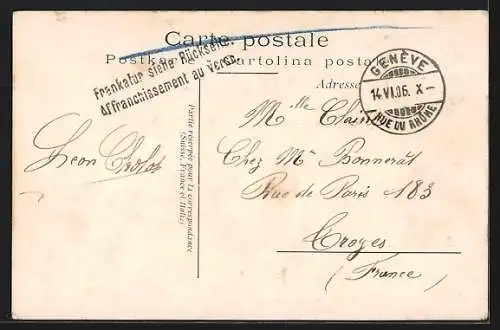 Carte postale
Postkarte Cartolina postale
Frankatur siehe Rückseite.
Affranchissement au verso.
Adresse
GENÈVE
14.VI.06. X-
RUE DU RHÔNE
Partie réservée pour la correspondance
(Suisse, France et Italie)
Léon
Mlle
Chez Mr Bonnerat
Rue de Paris 183
Troyes
(France)